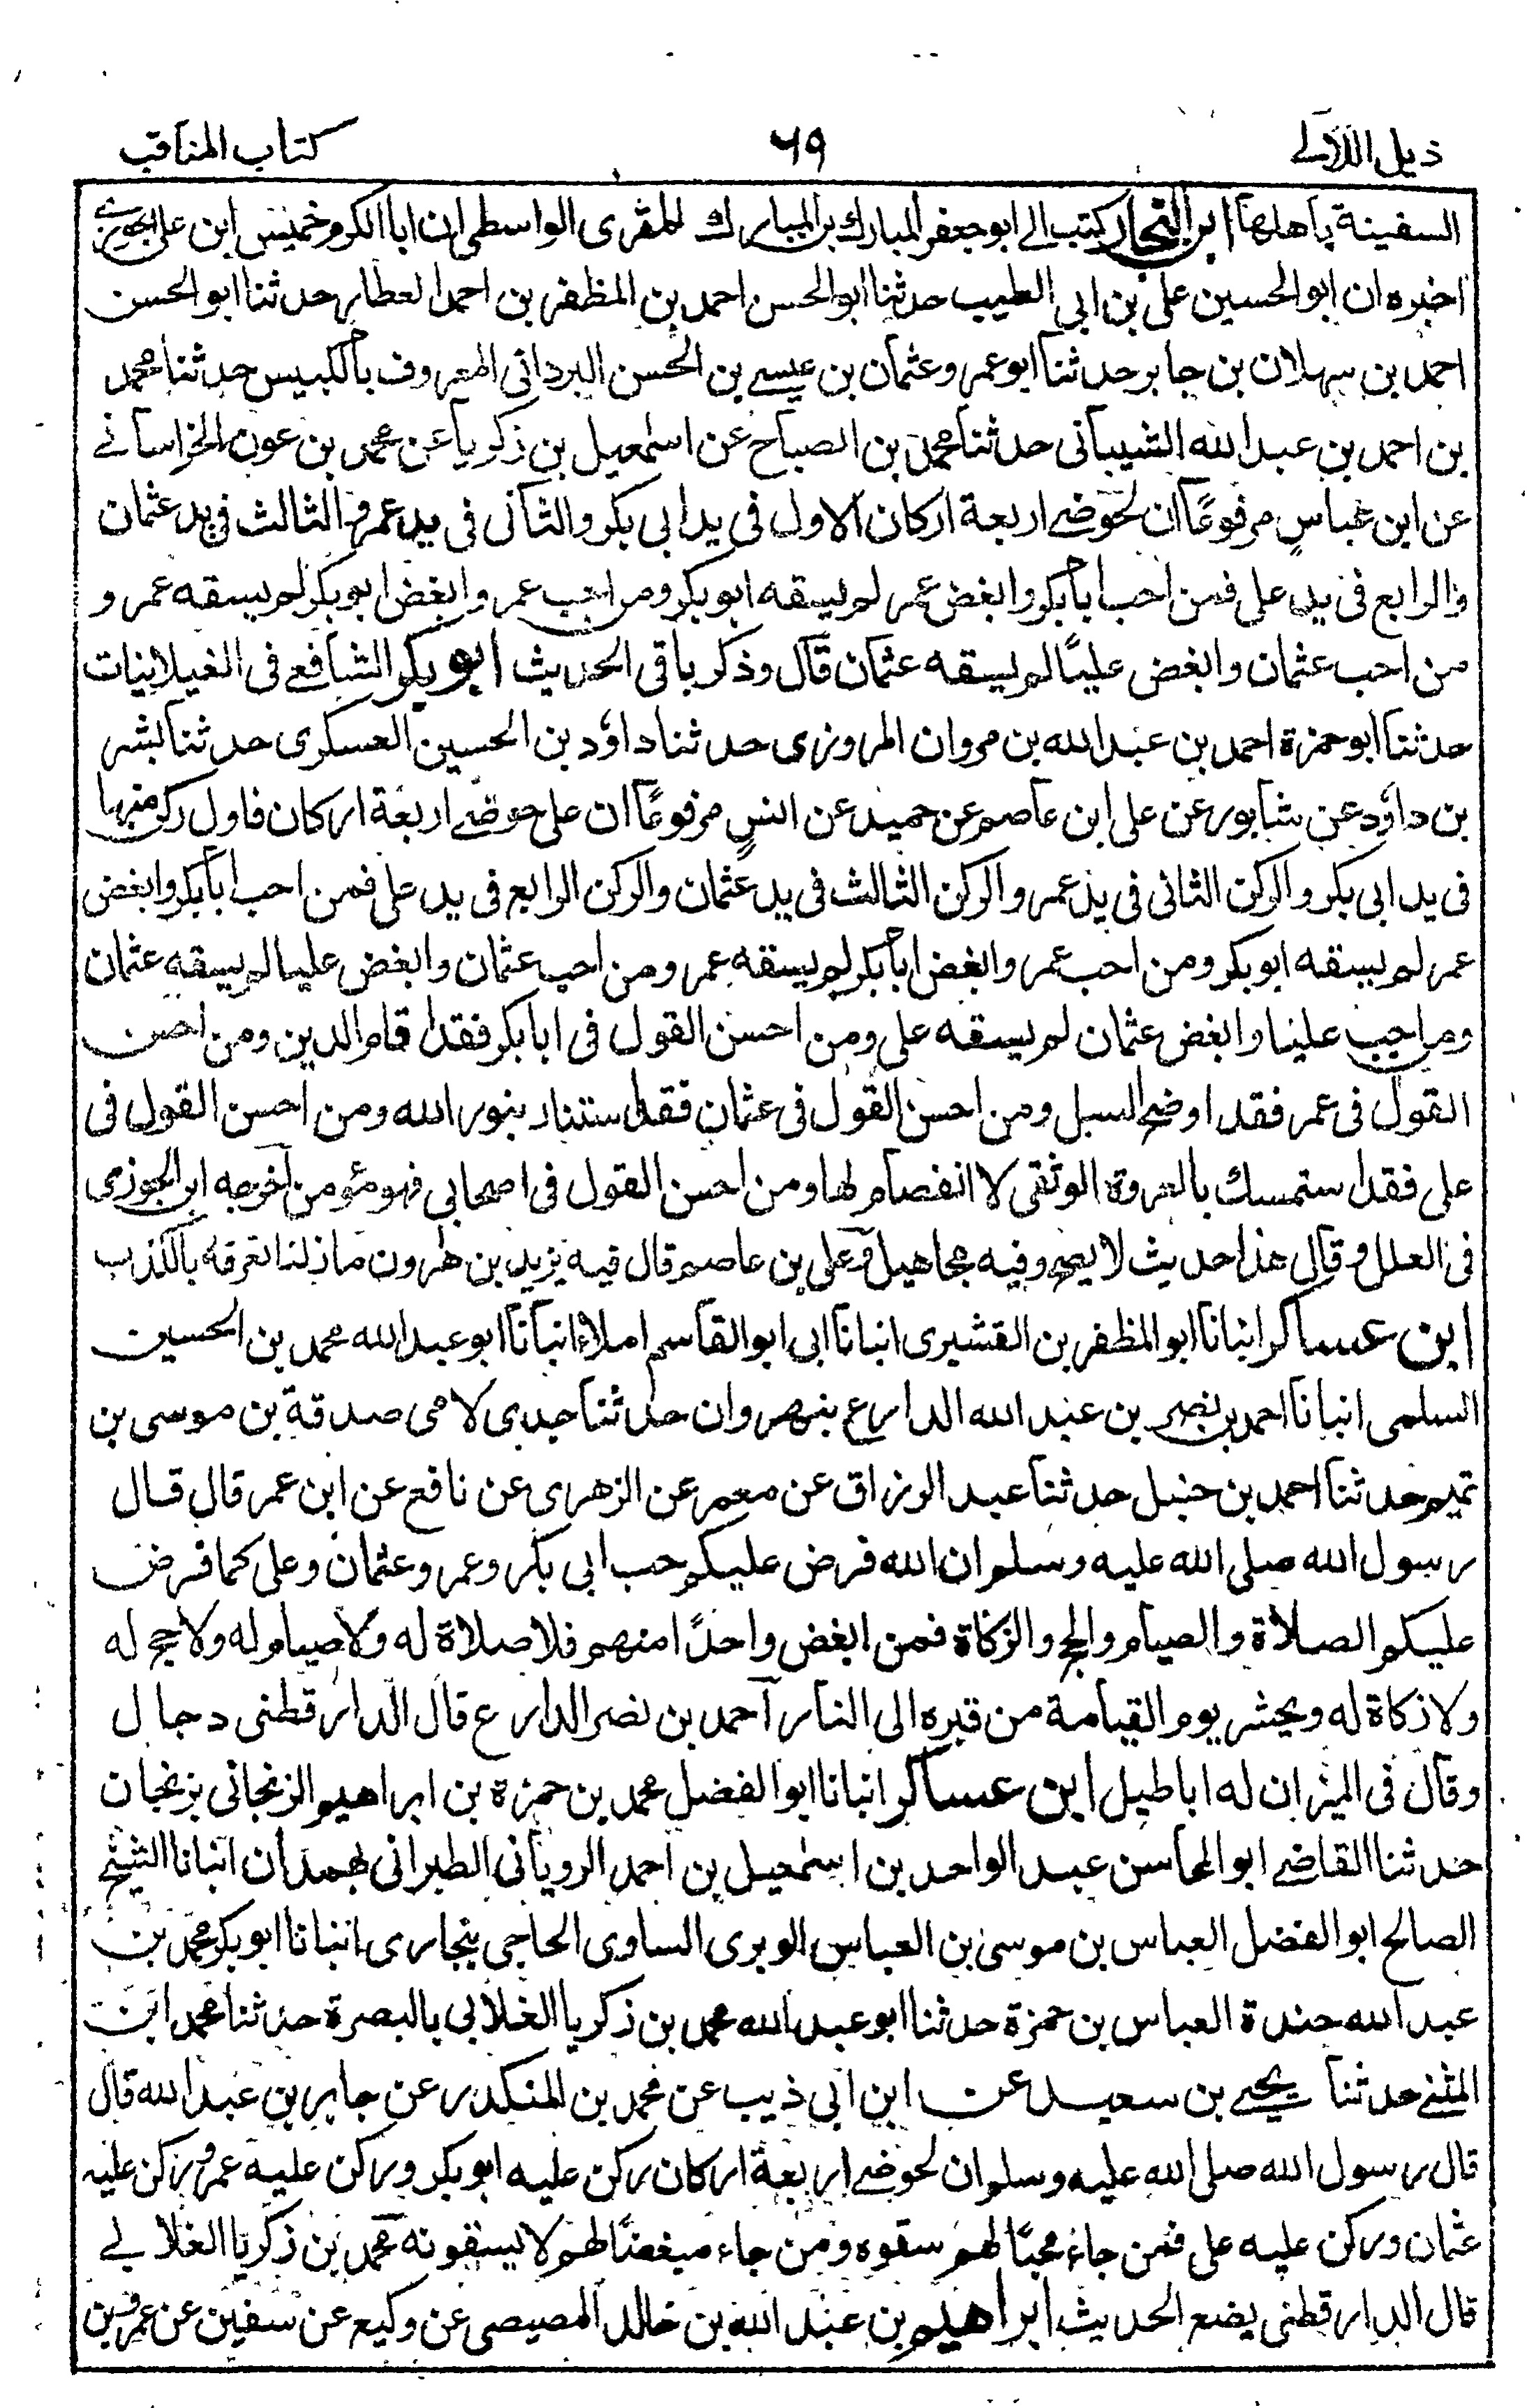 ذيل اللآلے ٦٩ كتاب المناقب
السفينة باهلها ابن النجار كتب الے ابو جعفر المبارك بن المبارك المقرى الواسطى ان ابا الكرم خميس ابن على الحوزے
اخبره ان ابو الحسين على بن ابى الطيب حدثنا ابو الحسن احمد بن المظفر بن احمد العطار حدثنا ابو الحسن
احمد بن سهلان بن جابر حدثنا ابو عمرو عثمان بن عيسے بن الحسن البردانى المعروف بالكبيس حدثنا محمد
بن احمد بن عبد الله الشيبانى حدثنا محمد بن الصباح عن اسمعيل بن زكريا عن محمد بن عون الخراسانے
عن ابن عباسٍ مرفوعًا ان لحوضے اربعة اركان الاول فى يد ابى بكر والثانى فى يد عمر والثالث فى يد عثمان
والرابع فى يد على فمن احب ابا بكر وابغض عمر لم يسقه ابو بكر ومن احب عمر وابغض ابو بكر لم يسقه عمر و
من احب عثمان وابغض عليًا لم يسقه عثمان قال وذكر باقى الحديث ابو بكر الشافعے فى الغيلانيات
حدثنا ابو حمزة احمد بن عبد الله بن مروان المروزى حدثنا داؤد بن الحسين العسكرى حدثنا بشر
بن داؤد عن شابور عن على ابن عاصم عن حميد عن انسٍ مرفوعًا ان على حوضے اربعة اركان فاول ركن منها
فى يد ابى بكر والركن الثانى فى يد عمر والركن الثالث فى يد عثمان والركن الرابع فى يد على فمن احب ابا بكر وابغض
عمر لم يسقه ابو بكر ومن احب عمر وابغض ابا بكر لم يسقه عمر ومن احب عثمان وابغض عليا لم يسقه عثمان
ومن احب عليا وابغض عثمان لم يسقه على ومن احسن القول فى ابا بكر فقد اقام الدين ومن احسن
القول فى عمر فقد اوضح السبل ومن احسن القول فى عثمان فقد استنار بنور الله ومن احسن القول فى
على فقد استمسك بالعروة الوثقى لا انفصام لها ومن احسن القول فى اصحابى فهو مؤمن اخرجه ابن الجوزى
فى العلل وقال هذا حديث لا يصح وفيه مجاهيل وعلى بن عاصم قال فيه يزيد بن هٰرون ما زلنا نعرفه بالكذب
ابن عساكر انبانا ابو المظفر بن القشيرى انبانا ابى ابو القاسم املاء انبانا ابو عبد الله محمد بن الحسين
السلمى انبانا احمد بن نصر بن عبد الله الدارع بنهروان حدثنا جدى لامى صدقة بن موسى بن
تميم حدثنا احمد بن حنبل حدثنا عبد الرزاق عن معمر عن الزهرى عن نافع عن ابن عمر قال قال
رسول الله صلى الله عليه وسلم ان الله فرض عليكم حب ابى بكر وعمر وعثمان وعلى كما فرض
عليكم الصلاة والصيام والحج والزكاة فمن ابغض واحدًا منهم فلا صلاة له ولا صيام له ولا حج له
ولا زكاة له ويحشر يوم القيامة من قبره الى النار احمد بن نصر الدارع قال الدارقطنى دجال
وقال فى الميزان له اباطيل ابن عساكر انبانا ابو الفضل محمد بن حمزة بن ابراهيم الزنجانى بزنجان
حدثنا القاضے ابو المحاسن عبد الواحد بن اسمٰعيل بن احمد الرويانى الطبرانى بهمدان انبانا الشيخ
الصالح ابو الفضل العباس بن موسىٰ بن العباس الوبرى الساوى الحاجى بنجارى انبانا ابو بكر محمد بن
عبد الله حندة العباس بن حمزة حدثنا ابو عبد الله محمد بن زكريا الغلابى بالبصرة حدثنا محمد ابن
المثنے حدثنا يحيے بن سعيد عن ابن ابى ذيب عن محمد بن المنكدر عن جابر بن عبد الله قال
قال رسول الله صلى الله عليه وسلم ان لحوضے اربعة اركان ركن عليه ابو بكر وركن عليه عمر وركن عليه
عثمان وركن عليه على فمن جاء محبًا لهم سقوه ومن جاء مبغضًا لهم لا يسقونه محمد بن زكريا الغلابے
قال الدارقطنى يضع الحديث ابراهيم بن عبد الله بن خالد المصيصى عن وكيع عن سفين عن عمرو بن